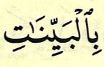 بِٱلْبَيِّنَٰتِ